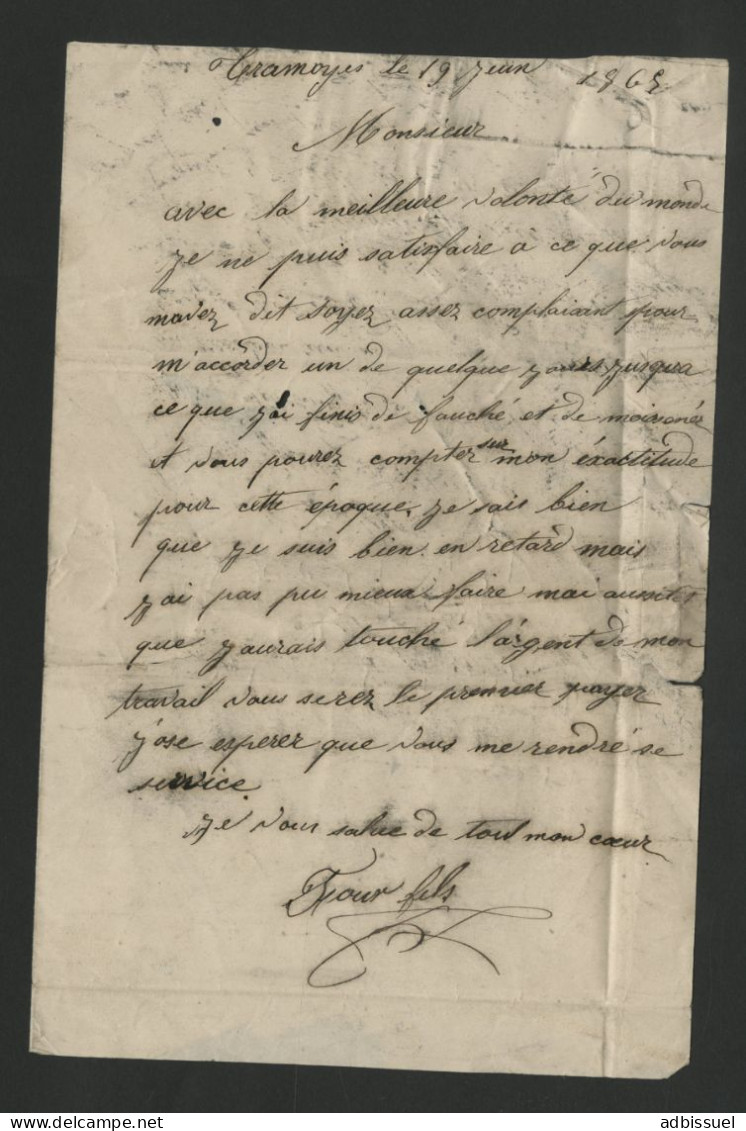 Tramoyes le 19 Juin 1865
Monsieur
avec la meilleure volonté du monde
je ne puis satisfaire a ce que vous
mavez dit soyez assez complaisant pour
m'accorder un de quelque jours jusqua
ce que j'ai finis de fauché et de moisoné
et vous pourez compter sur mon éxactitude
pour cette époque, je sais bien
que je suis bien en retard mais
j'ai pas pu mieux faire moi aussitot
que j'aurais touché l'argent de mon
travail vous serez le premier payer
j'ose esperer que vous me rendré se
service.
je vous salue de tout mon cœur
fils
adbissuel